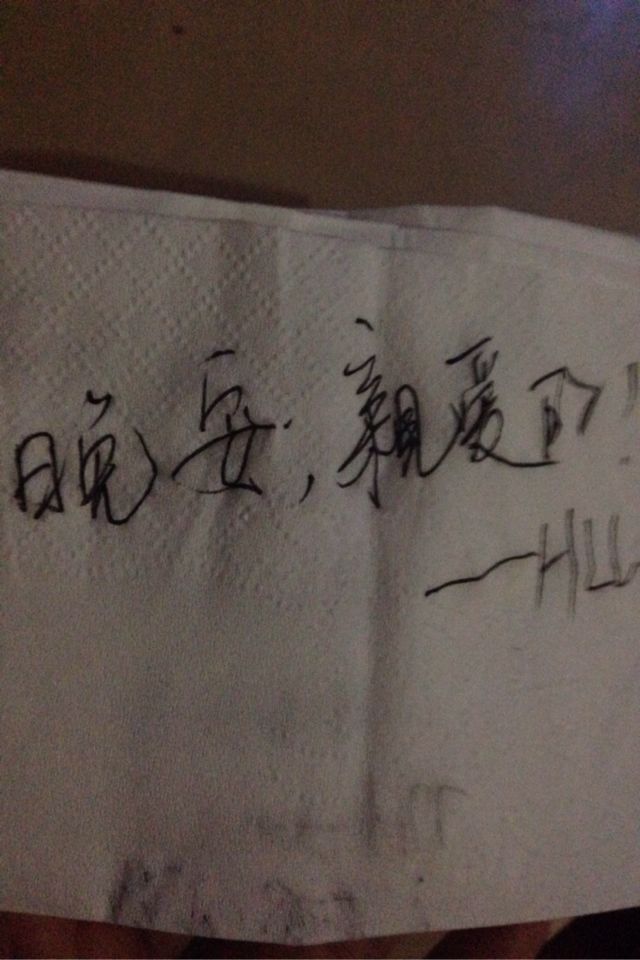 晚安，親爱的！
—HLL